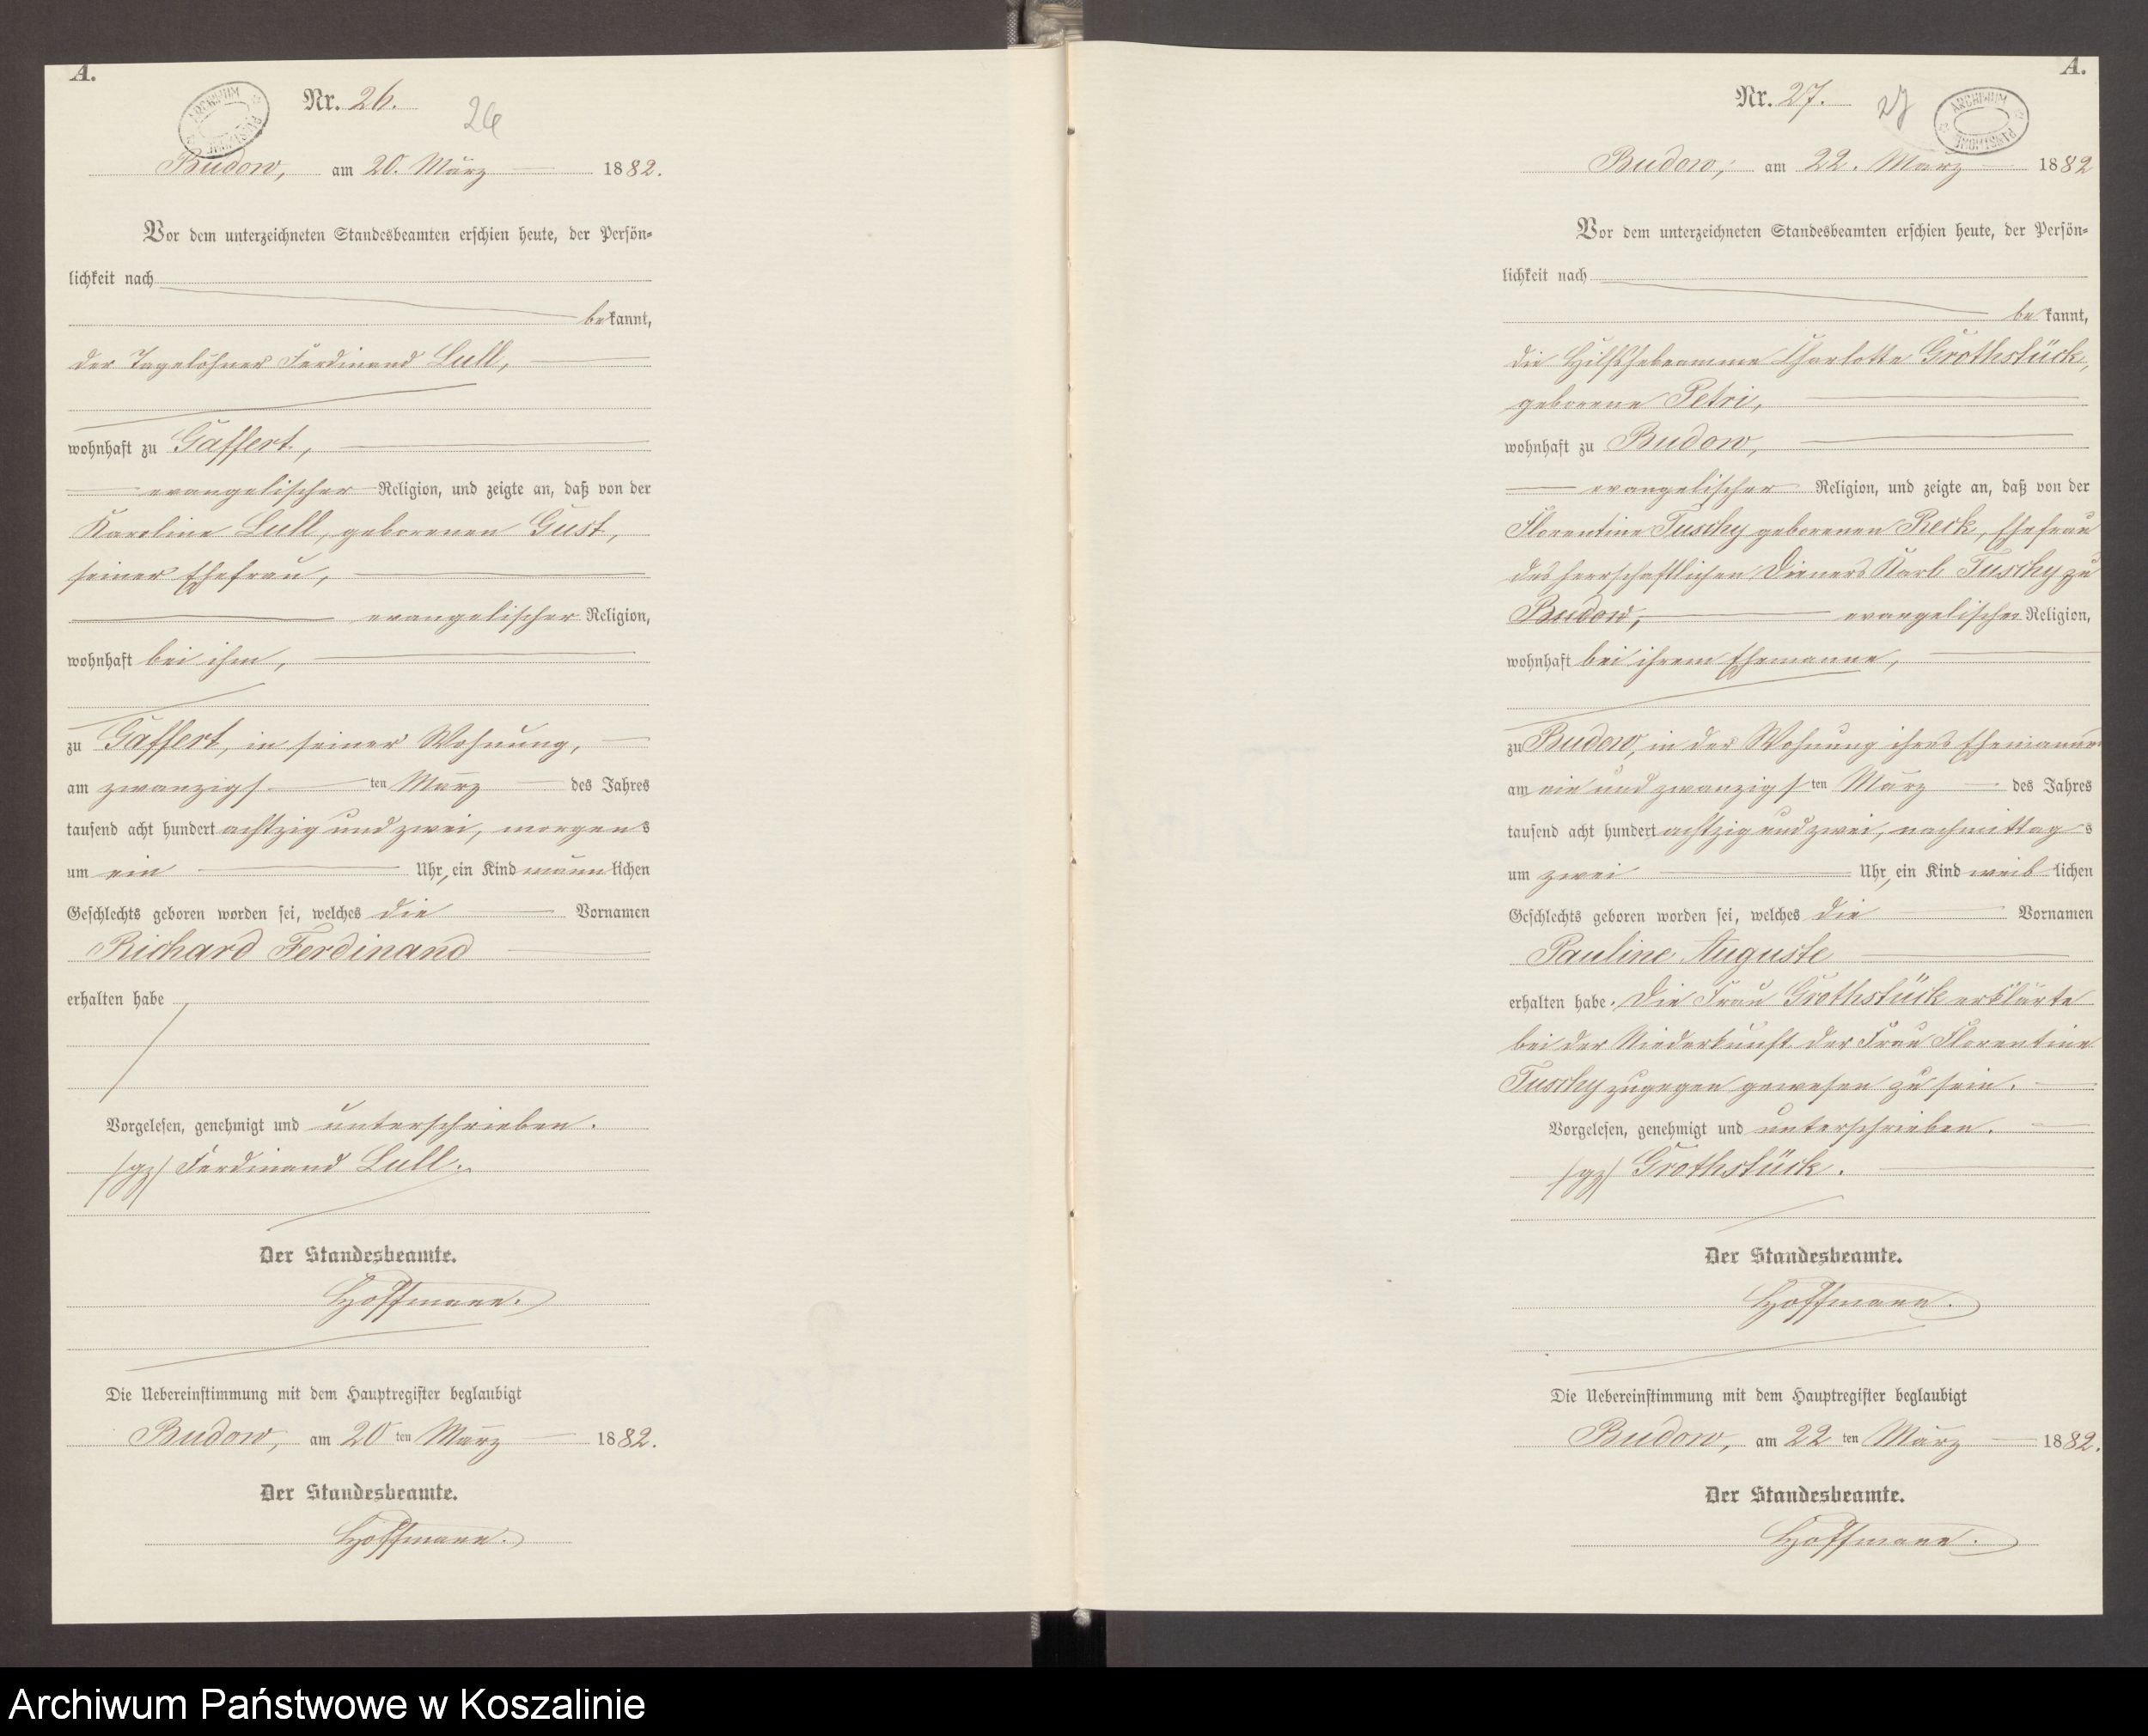 A.
Nr. 26.
26
ARCHIWUM PAŃSTWOWE
Budow, am 20. März 1882.
Vor dem unterzeichneten Standesbeamten erschien heute, der Persön-
lichkeit nach
bekannt,
der Tagelöhner Ferdinand Lull,
wohnhaft zu Gaffert,
evangelischer Religion, und zeigte an, daß von der
Karoline Lull, geborenen Gust,
seiner Ehefrau,
evangelischer Religion,
wohnhaft bei ihm,
zu Gaffert, in seiner Wohnung,
am zwanzigsten März des Jahres
tausend acht hundert achtzig und zwei, morgens
um ein Uhr, ein Kind männlichen
Geschlechts geboren worden sei, welches die Vornamen
Richard Ferdinand
erhalten habe
Vorgelesen, genehmigt und unterschrieben.
/gz/ Ferdinand Lull.
Der Standesbeamte.
Hoffmann.
Die Uebereinstimmung mit dem Hauptregister beglaubigt
Budow, am 20ten März 1882.
Der Standesbeamte.
Hoffmann.
A.
Nr. 27.
27
ARCHIWUM PAŃSTWOWE
Budow, am 22. März 1882
Vor dem unterzeichneten Standesbeamten erschien heute, der Persön-
lichkeit nach
bekannt,
die Hilfshebeamme Charlotte Grothstück,
geborene Petri,
wohnhaft zu Budow,
evangelischer Religion, und zeigte an, daß von der
Florentine Tuschy geborenen Reck, Ehefrau
des herrschaftlichen Dieners Karl Tuschy zu
Budow, evangelischer Religion,
wohnhaft bei ihrem Ehemanne,
zu Budow, in der Wohnung ihres Ehemannes
am ein und zwanzigsten März des Jahres
tausend acht hundert achtzig und zwei, nachmittags
um zwei Uhr, ein Kind weiblichen
Geschlechts geboren worden sei, welches die Vornamen
Pauline Auguste
erhalten habe. Die Frau Grothstück erklärte
bei der Niederkunft der Frau Florentine
Tuschy zugegen gewesen zu sein.
Vorgelesen, genehmigt und unterschrieben.
/gz/ Grothstück.
Der Standesbeamte.
Hoffmann.
Die Uebereinstimmung mit dem Hauptregister beglaubigt
Budow, am 22ten März 1882.
Der Standesbeamte.
Hoffmann.
Archiwum Państwowe w Koszalinie